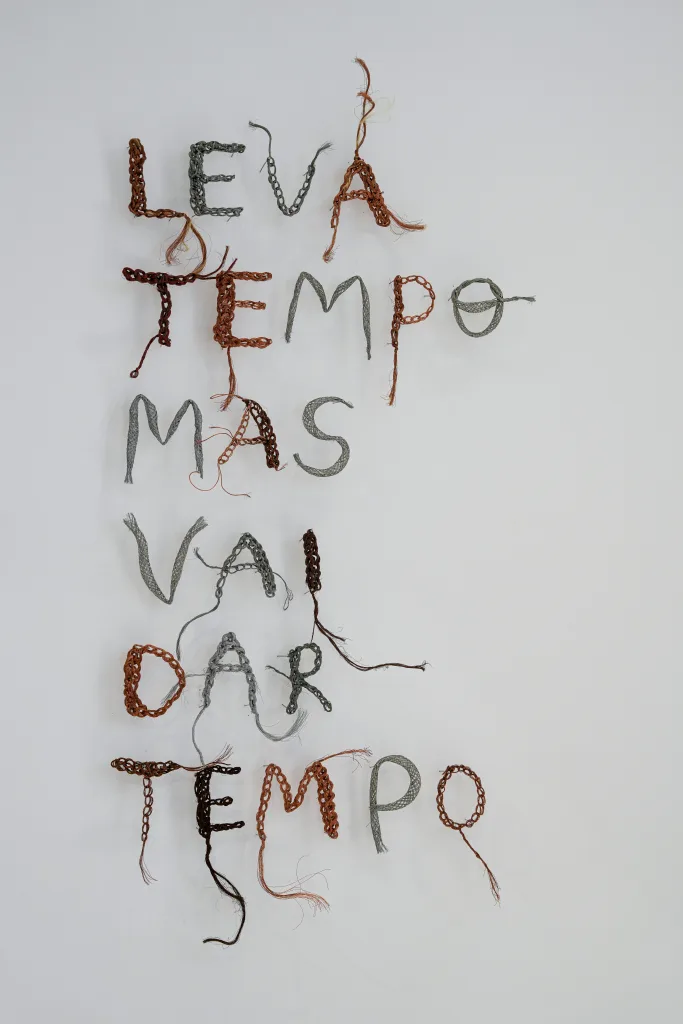 LEVA
TEMPO
MAS
VAI
DAR
TEMPO